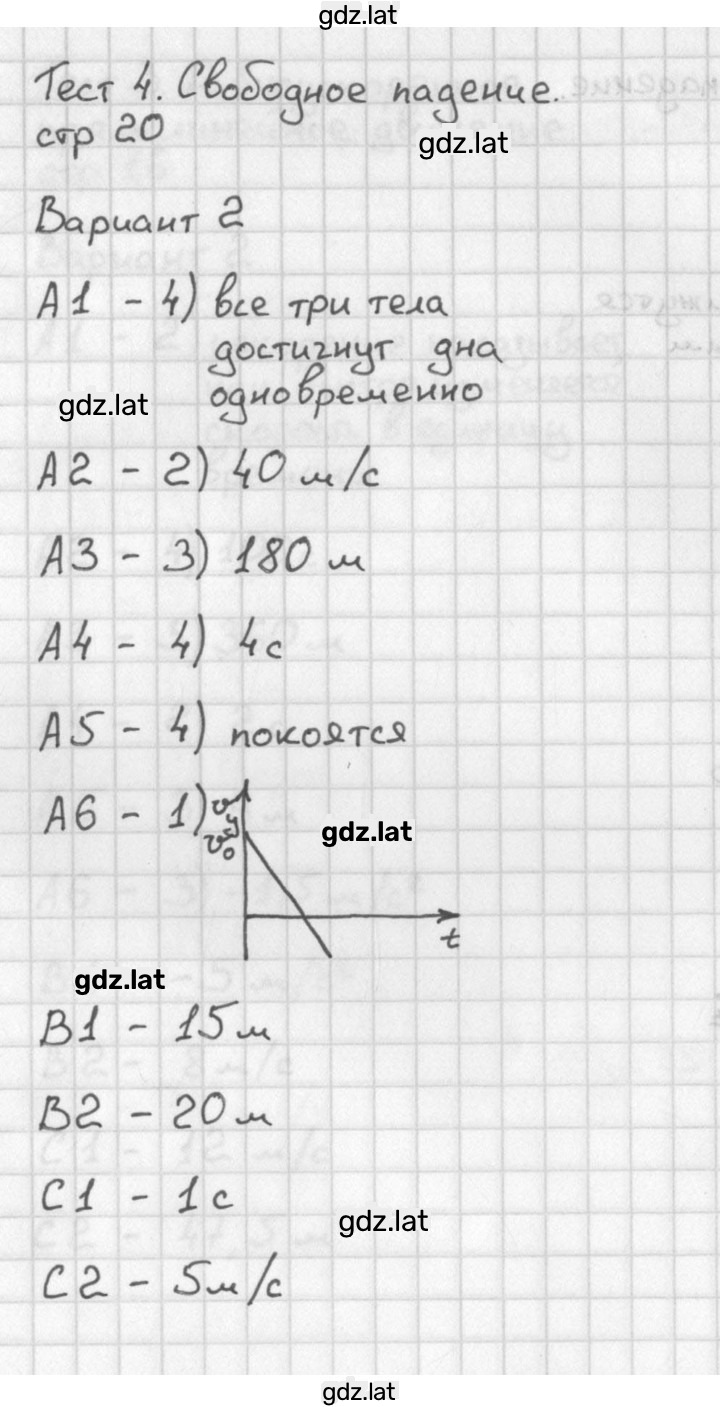 gdz.lat
Тест 4. Свободное падение.
стр 20
gdz.lat
Вариант 2
А1 - 4) все три тела
достигнут дна
gdz.lat
одновременно
А2 - 2) 40 м/с
А3 - 3) 180 м
А4 - 4) 4с
А5 - 4) покоятся
А6 - 1) vy
gdz.lat
v0
t
gdz.lat
В1 - 15 м
В2 - 20 м
С1 - 1 с
gdz.lat
С2 - 5м/с
gdz.lat